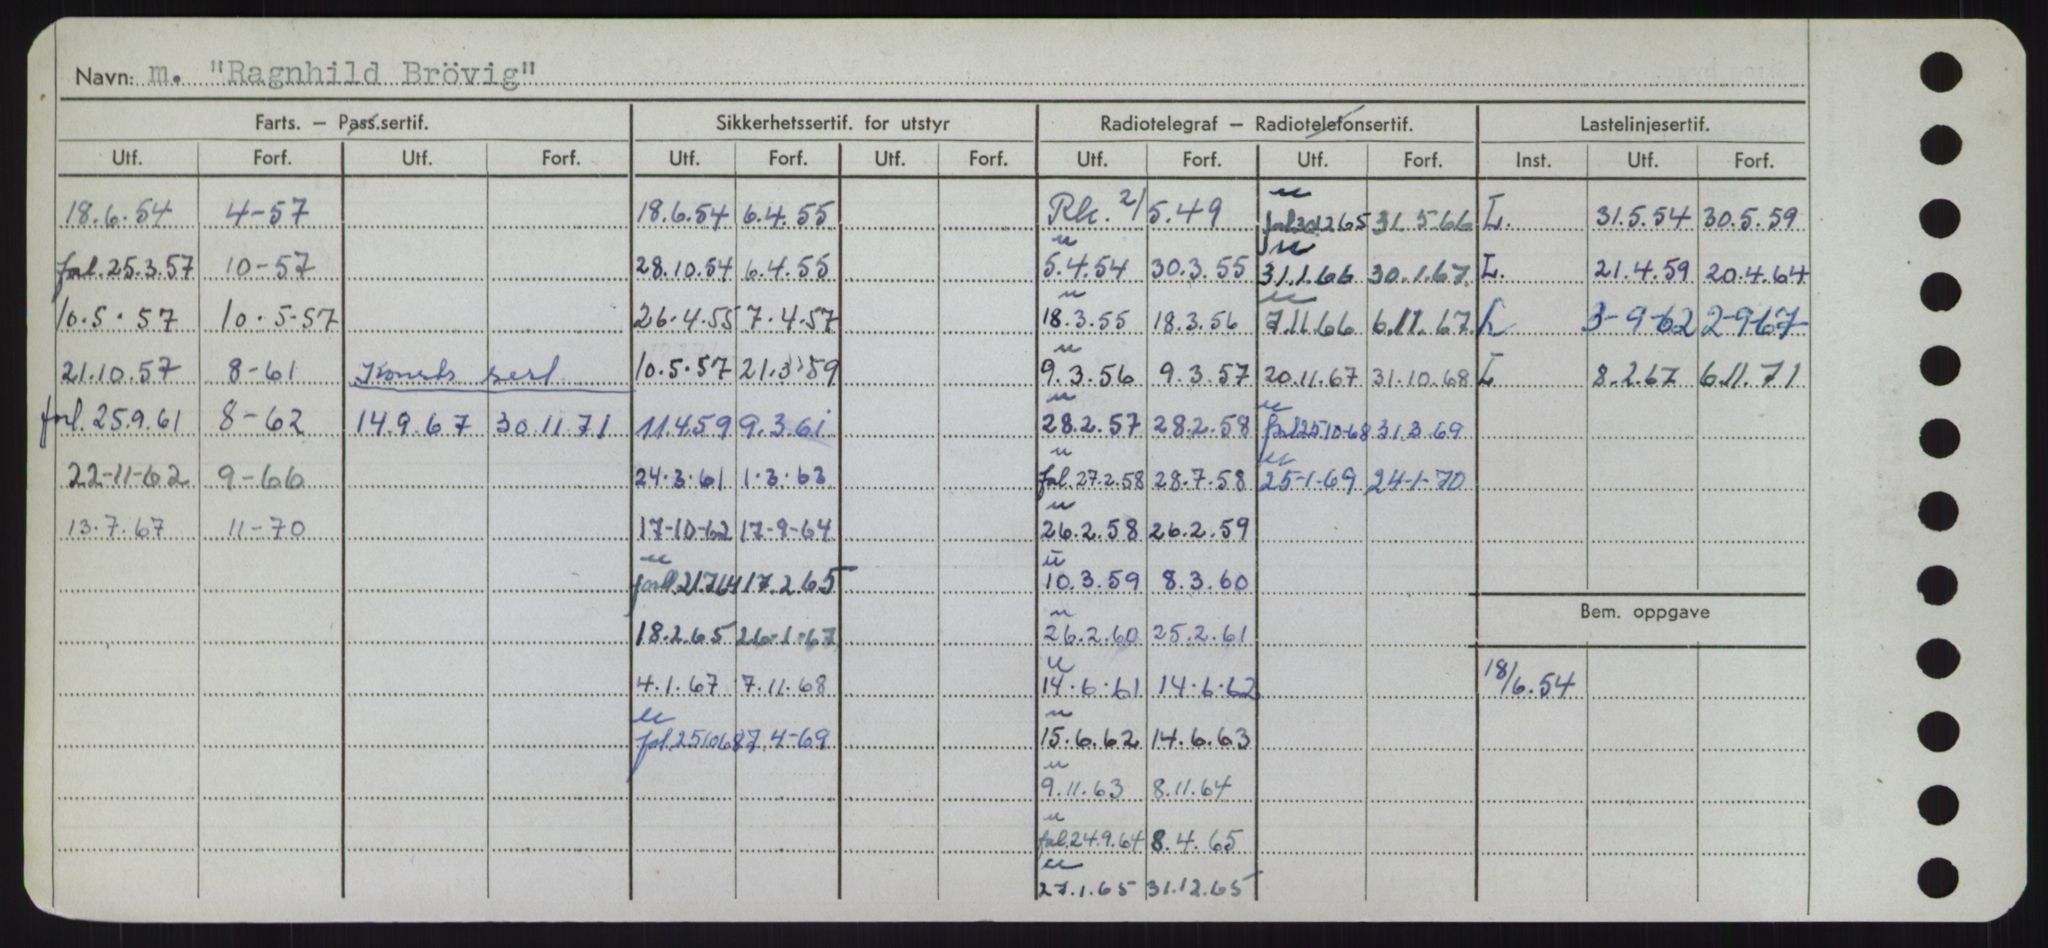 Navn: m. "Ragnhild Brövig"
Farts. — Pass.sertif. Sikkerhetssertif. for utstyr Radiotelegraf — Radiotelefonsertif. Lastelinjesertif.
Utf. Forf. Utf. Forf. Utf. Forf. Utf. Forf. Utf. Forf. Utf. Forf. Inst. Utf. Forf.
18.6.54 4-57 18.6.54 6.4.55 Rk. 2/5.49 31.5.66 L. 31.5.54 30.5.59
fal. 25.3.57 10-57 28.10.54 6.4.55 5.4.54 30.3.55 31.1.66 30.1.67 L. 21.4.59 20.4.64
10.5.57 10.5-57 26.4.55 7.4.57 18.3.55 18.3.56 7.11.66 6.11.67 L 3-9-62 2-9-67
21.10.57 8-61 10.5.57 21.3.59 9.3.56 9.3.57 20.11.67 31.10.68 L 8.2.67 6.11.71
forl. 25.9.61 8-62 14.9.67 30.11.71 11.4.59 9.3.61 28.2.57 28.2.58 fal 25.10.68 31.3.69
22-11-62 9-66 24.3.61 1.3.63 fal. 27.2.58 28.7.58 25-1-69 24-1-70
13.7.67 11-70 17-10-62 17-9-64 26.2.58 26.2.59
forl. 21.7.64 17.2.65 10.3.59 8.3.60
Bem. oppgave
18.2.65 26.1.67 26.2.60 25.2.61
4.1.67 7.11.68 14.6.61 14.6.62 18/6.54
fal. 25.10.68 7.4-69 15.6.62 14.6.63
9.11.63 8.11.64
fal. 24.9.64 8.4.65
27.1.65 31.12.65